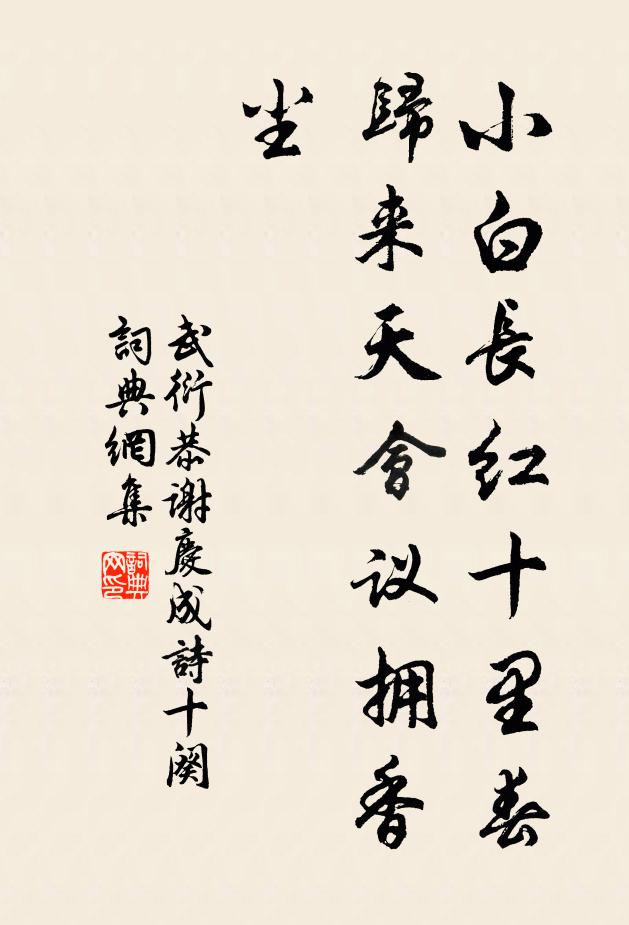 小白長红十里春
歸来天會议拥香
尘
武衍恭谢慶成詩十阕
詞典網集
詞典网印